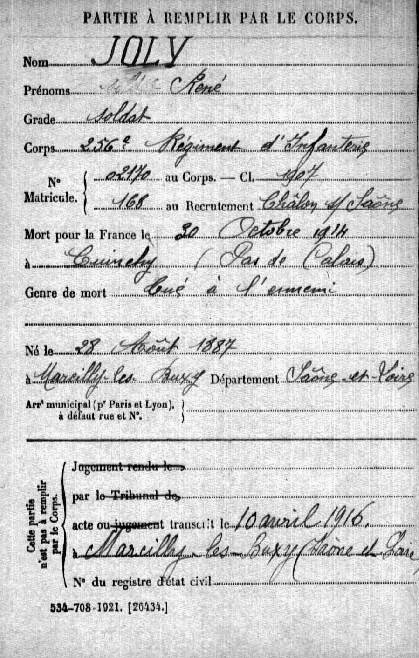 PARTIE À REMPLIR PAR LE CORPS.
Nom JOLY
Prénoms René
Grade soldat
Corps 256e Régiment d'Infanterie
No Matricule. { 02170 au Corps. — Cl. 1907
168 au Recrutement Châlon s/ Saône
Mort pour la France le 30 Octobre 1914
à Cuinchy (Pas de Calais)
Genre de mort tué à l'ennemi
Né le 28 Août 1887
à Marcilly-les-Buxy Département Saône-et-Loire
Arrt municipal (pr Paris et Lyon), à défaut rue et No. {
Cette partie n'est pas à remplir par le Corps.
Jugement rendu le
par le Tribunal de
acte ou jugement transcrit le 10 avril 1916.
à Marcilly-les-Buxy (Saône et Loire
No du registre d'état civil
534-708-1921. [26434.]